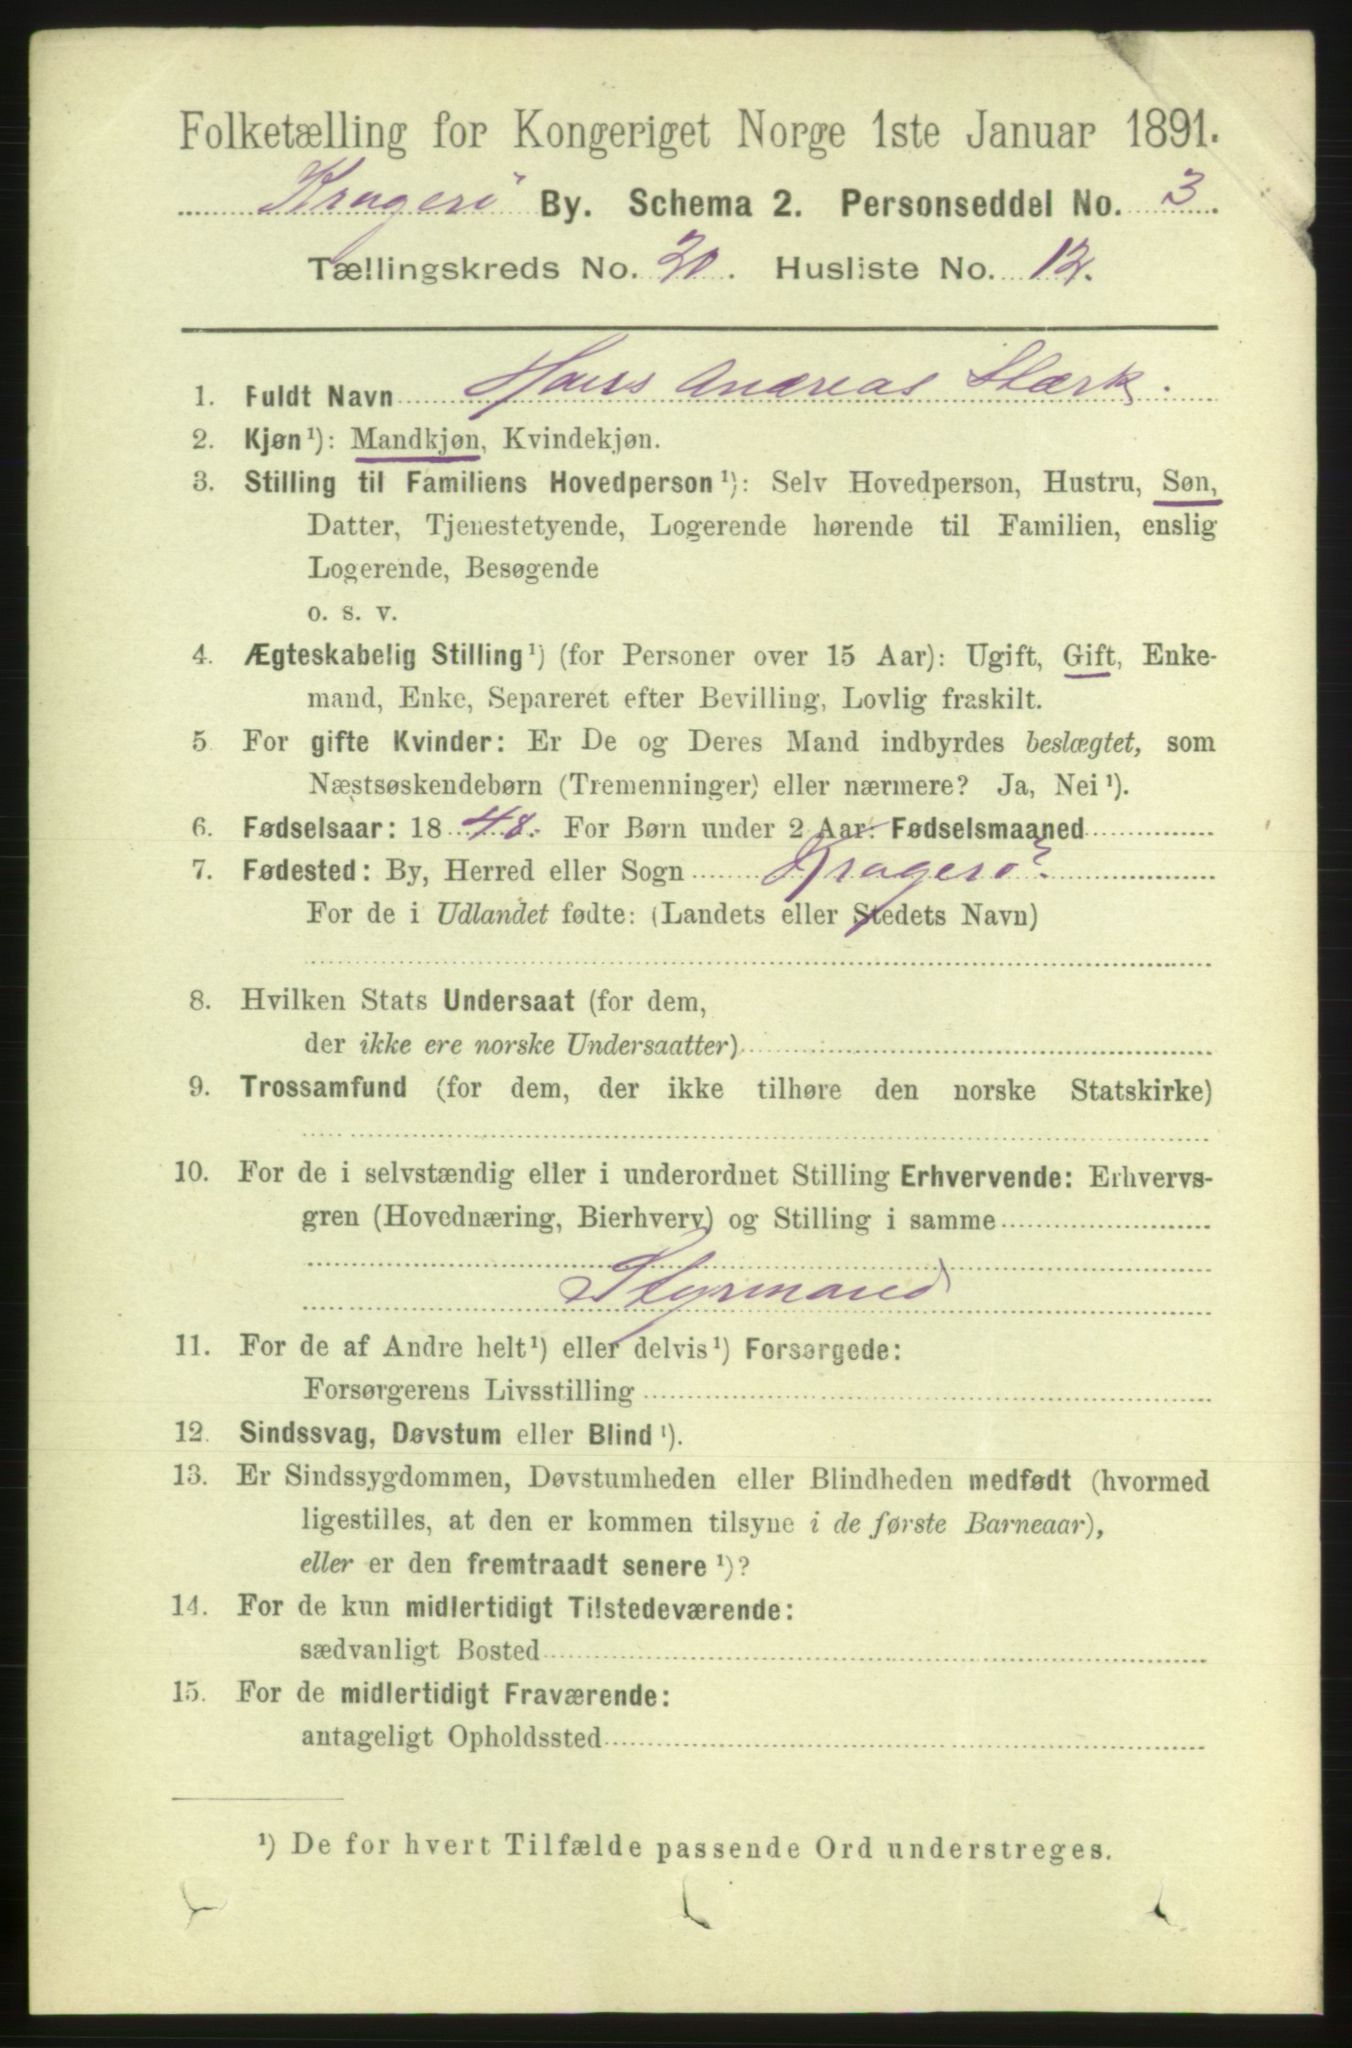 Folketælling for Kongeriget Norge 1ste Januar 1891.
Kragerö By. Schema 2. Personseddel No. 3.
Tællingskreds No. 20. Husliste No. 12.
1. Fuldt Navn Hans Andreas Stærk.
2. Kjøn¹): Mandkjøn, Kvindekjøn.
3. Stilling til Familiens Hovedperson¹): Selv Hovedperson, Hustru, Søn,
Datter, Tjenestetyende, Logerende hørende til Familien, enslig
Logerende, Besøgende
o. s. v.
4. Ægteskabelig Stilling¹) (for Personer over 15 Aar): Ugift, Gift, Enke-
mand, Enke, Separeret efter Bevilling, Lovlig fraskilt.
5 For gifte Kvinder: Er De og Deres Mand indbyrdes beslægtet, som
Næstsøskendebørn (Tremenninger) eller nærmere? Ja, Nei¹).
6. Fødselsaar: 1848. For Børn under 2 Aar: Fødselsmaaned
7. Fødested: By, Herred eller Sogn Kragerö.
For de i Udlandet fødte: (Landets eller Stedets Navn)
8. Hvilken Stats Undersaat (for dem,
der ikke ere norske Undersaatter)
9. Trossamfund (for dem, der ikke tilhøre den norske Statskirke)
10. For de i selvstændig eller i underordnet Stilling Erhvervende: Erhvervs-
gren (Hovednæring, Bierhverv) og Stilling i samme
Styrmand
11. For de af Andre helt¹) eller delvis¹) Forsørgede:
Forsørgerens Livsstilling
12. Sindssvag, Døvstum eller Blind¹).
13. Er Sindssygdommen, Døvstumheden eller Blindheden medfødt (hvormed
ligestilles, at den er kommen tilsyne i de første Barneaar),
eller er den fremtraadt senere¹)?
14. For de kun midlertidigt Tilstedeværende:
sædvanligt Bosted
15. For de midlertidigt Fraværende:
antageligt Opholdssted
¹) De for hvert Tilfælde passende Ord understreges.